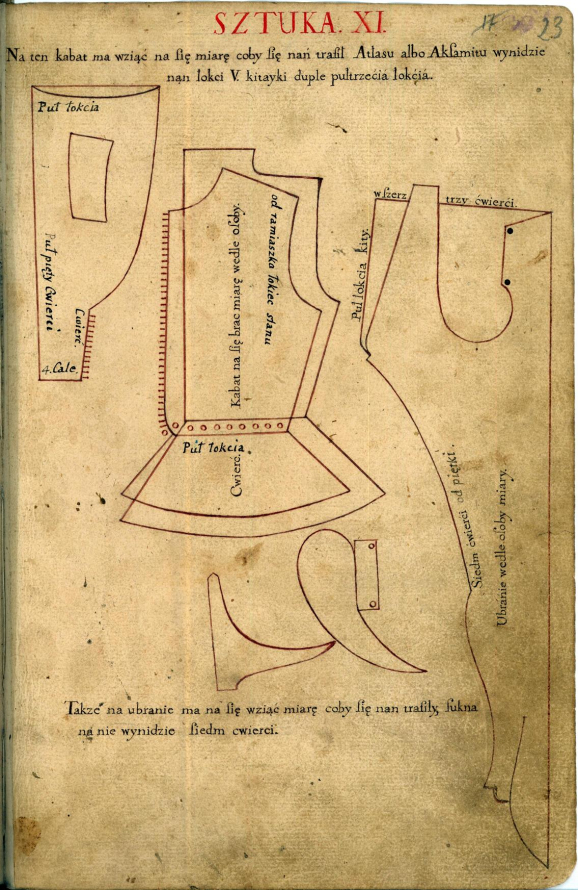 SZTUKA. XI.
23
Na ten kabat ma wziąć na ſię miarę coby ſię nań trafił Atlasu albo Akſamitu wynidzie
nań łokci V. kitayki duple pułtrzecia łokcia.
Puł łokcia
Puł pięty Cwierci
Cwierć.
4. Cale.
Kabat na ſię brac miarę wedle oſoby.
od ramiaszka łokiec stanu
Puł łokcia.
Cwierć.
wſzerz trzy ćwierci.
Puł łokcia kity.
Siedm ćwierci od piętki.
Ubranie wedle oſoby miary.
Takze na ubranie ma na ſię wziąc miarę coby ſię nan trafiły, ſukna
na nie wynidzie ſiedm cwierci.